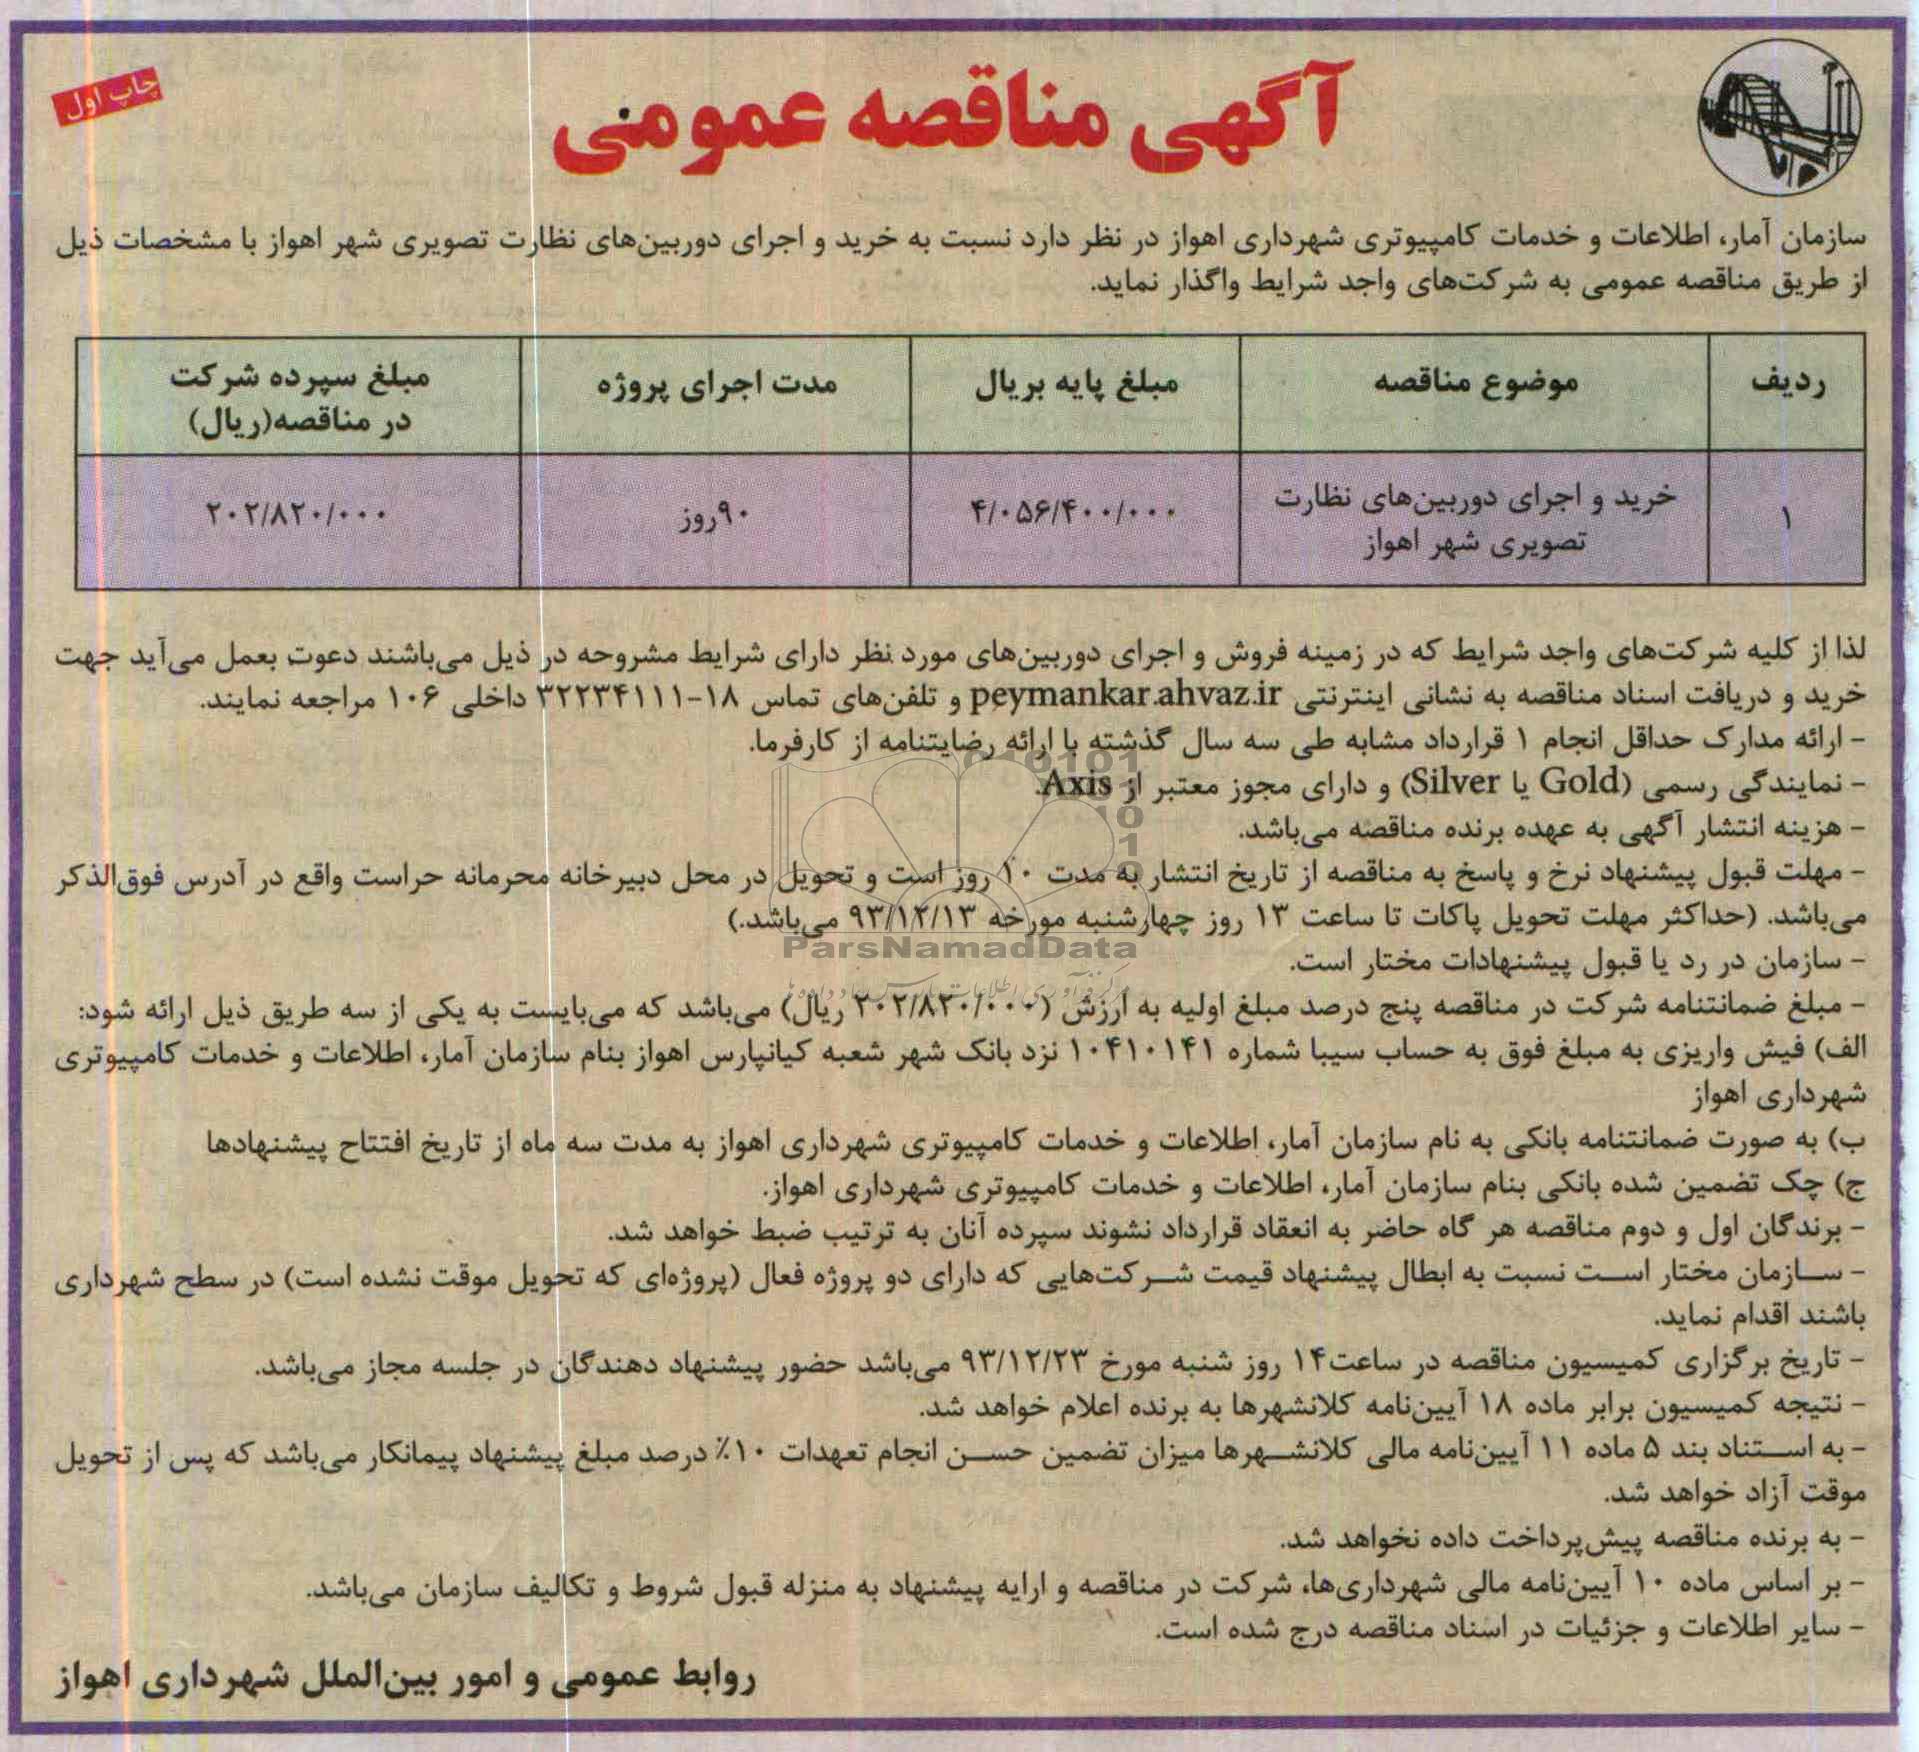 چاپ اول
آگهی مناقصه عمومی
سازمان آمار، اطلاعات و خدمات کامپیوتری شهرداری اهواز در نظر دارد نسبت به خرید و اجرای دوربین‌های نظارت تصویری شهر اهواز با مشخصات ذیل
از طریق مناقصه عمومی به شرکت‌های واجد شرایط واگذار نماید.
ردیف موضوع مناقصه مبلغ پایه بریال مدت اجرای پروژه مبلغ سپرده شرکت در مناقصه(ریال)
۱ خرید و اجرای دوربین‌های نظارت تصویری شهر اهواز ۴/۰۵۶/۴۰۰/۰۰۰ ۹۰روز ۲۰۲/۸۲۰/۰۰۰
لذا از کلیه شرکت‌های واجد شرایط که در زمینه فروش و اجرای دوربین‌های مورد نظر دارای شرایط مشروحه در ذیل می‌باشند دعوت بعمل می‌آید جهت
خرید و دریافت اسناد مناقصه به نشانی اینترنتی peymankar.ahvaz.ir و تلفن‌های تماس ۱۸-۳۲۲۳۴۱۱۱ داخلی ۱۰۶ مراجعه نمایند.
- ارائه مدارک حداقل انجام ۱ قرارداد مشابه طی سه سال گذشته با ارائه رضایتنامه از کارفرما.
- نمایندگی رسمی (Gold یا Silver) و دارای مجوز معتبر از Axis.
- هزینه انتشار آگهی به عهده برنده مناقصه می‌باشد.
- مهلت قبول پیشنهاد نرخ و پاسخ به مناقصه از تاریخ انتشار به مدت ۱۰ روز است و تحویل در محل دبیرخانه محرمانه حراست واقع در آدرس فوق‌الذکر
می‌باشد. (حداکثر مهلت تحویل پاکات تا ساعت ۱۳ روز چهارشنبه مورخه ۹۳/۱۲/۱۳ می‌باشد.)
ParsNamadData
- سازمان در رد یا قبول پیشنهادات مختار است.
- مبلغ ضمانتنامه شرکت در مناقصه پنج درصد مبلغ اولیه به ارزش (۲۰۲/۸۲۰/۰۰۰ ریال) می‌باشد که می‌بایست به یکی از سه طریق ذیل ارائه شود:
الف) فیش واریزی به مبلغ فوق به حساب سیبا شماره ۱۰۴۱۰۱۴۱ نزد بانک شهر شعبه کیانپارس اهواز بنام سازمان آمار، اطلاعات و خدمات کامپیوتری
شهرداری اهواز
ب) به صورت ضمانتنامه بانکی به نام سازمان آمار، اطلاعات و خدمات کامپیوتری شهرداری اهواز به مدت سه ماه از تاریخ افتتاح پیشنهادها
ج) چک تضمین شده بانکی بنام سازمان آمار، اطلاعات و خدمات کامپیوتری شهرداری اهواز.
- برندگان اول و دوم مناقصه هر گاه حاضر به انعقاد قرارداد نشوند سپرده آنان به ترتیب ضبط خواهد شد.
- سازمان مختار است نسبت به ابطال پیشنهاد قیمت شرکت‌هایی که دارای دو پروژه فعال (پروژه‌ای که تحویل موقت نشده است) در سطح شهرداری
باشند اقدام نماید.
- تاریخ برگزاری کمیسیون مناقصه در ساعت۱۴ روز شنبه مورخ ۹۳/۱۲/۲۳ می‌باشد حضور پیشنهاد دهندگان در جلسه مجاز می‌باشد.
- نتیجه کمیسیون برابر ماده ۱۸ آیین‌نامه کلانشهرها به برنده اعلام خواهد شد.
- به استناد بند ۵ ماده ۱۱ آیین‌نامه مالی کلانشهرها میزان تضمین حسن انجام تعهدات ۱۰٪ درصد مبلغ پیشنهاد پیمانکار می‌باشد که پس از تحویل
موقت آزاد خواهد شد.
- به برنده مناقصه پیش‌پرداخت داده نخواهد شد.
- بر اساس ماده ۱۰ آیین‌نامه مالی شهرداری‌ها، شرکت در مناقصه و ارایه پیشنهاد به منزله قبول شروط و تکالیف سازمان می‌باشد.
- سایر اطلاعات و جزئیات در اسناد مناقصه درج شده است.
روابط عمومی و امور بین‌الملل شهرداری اهواز